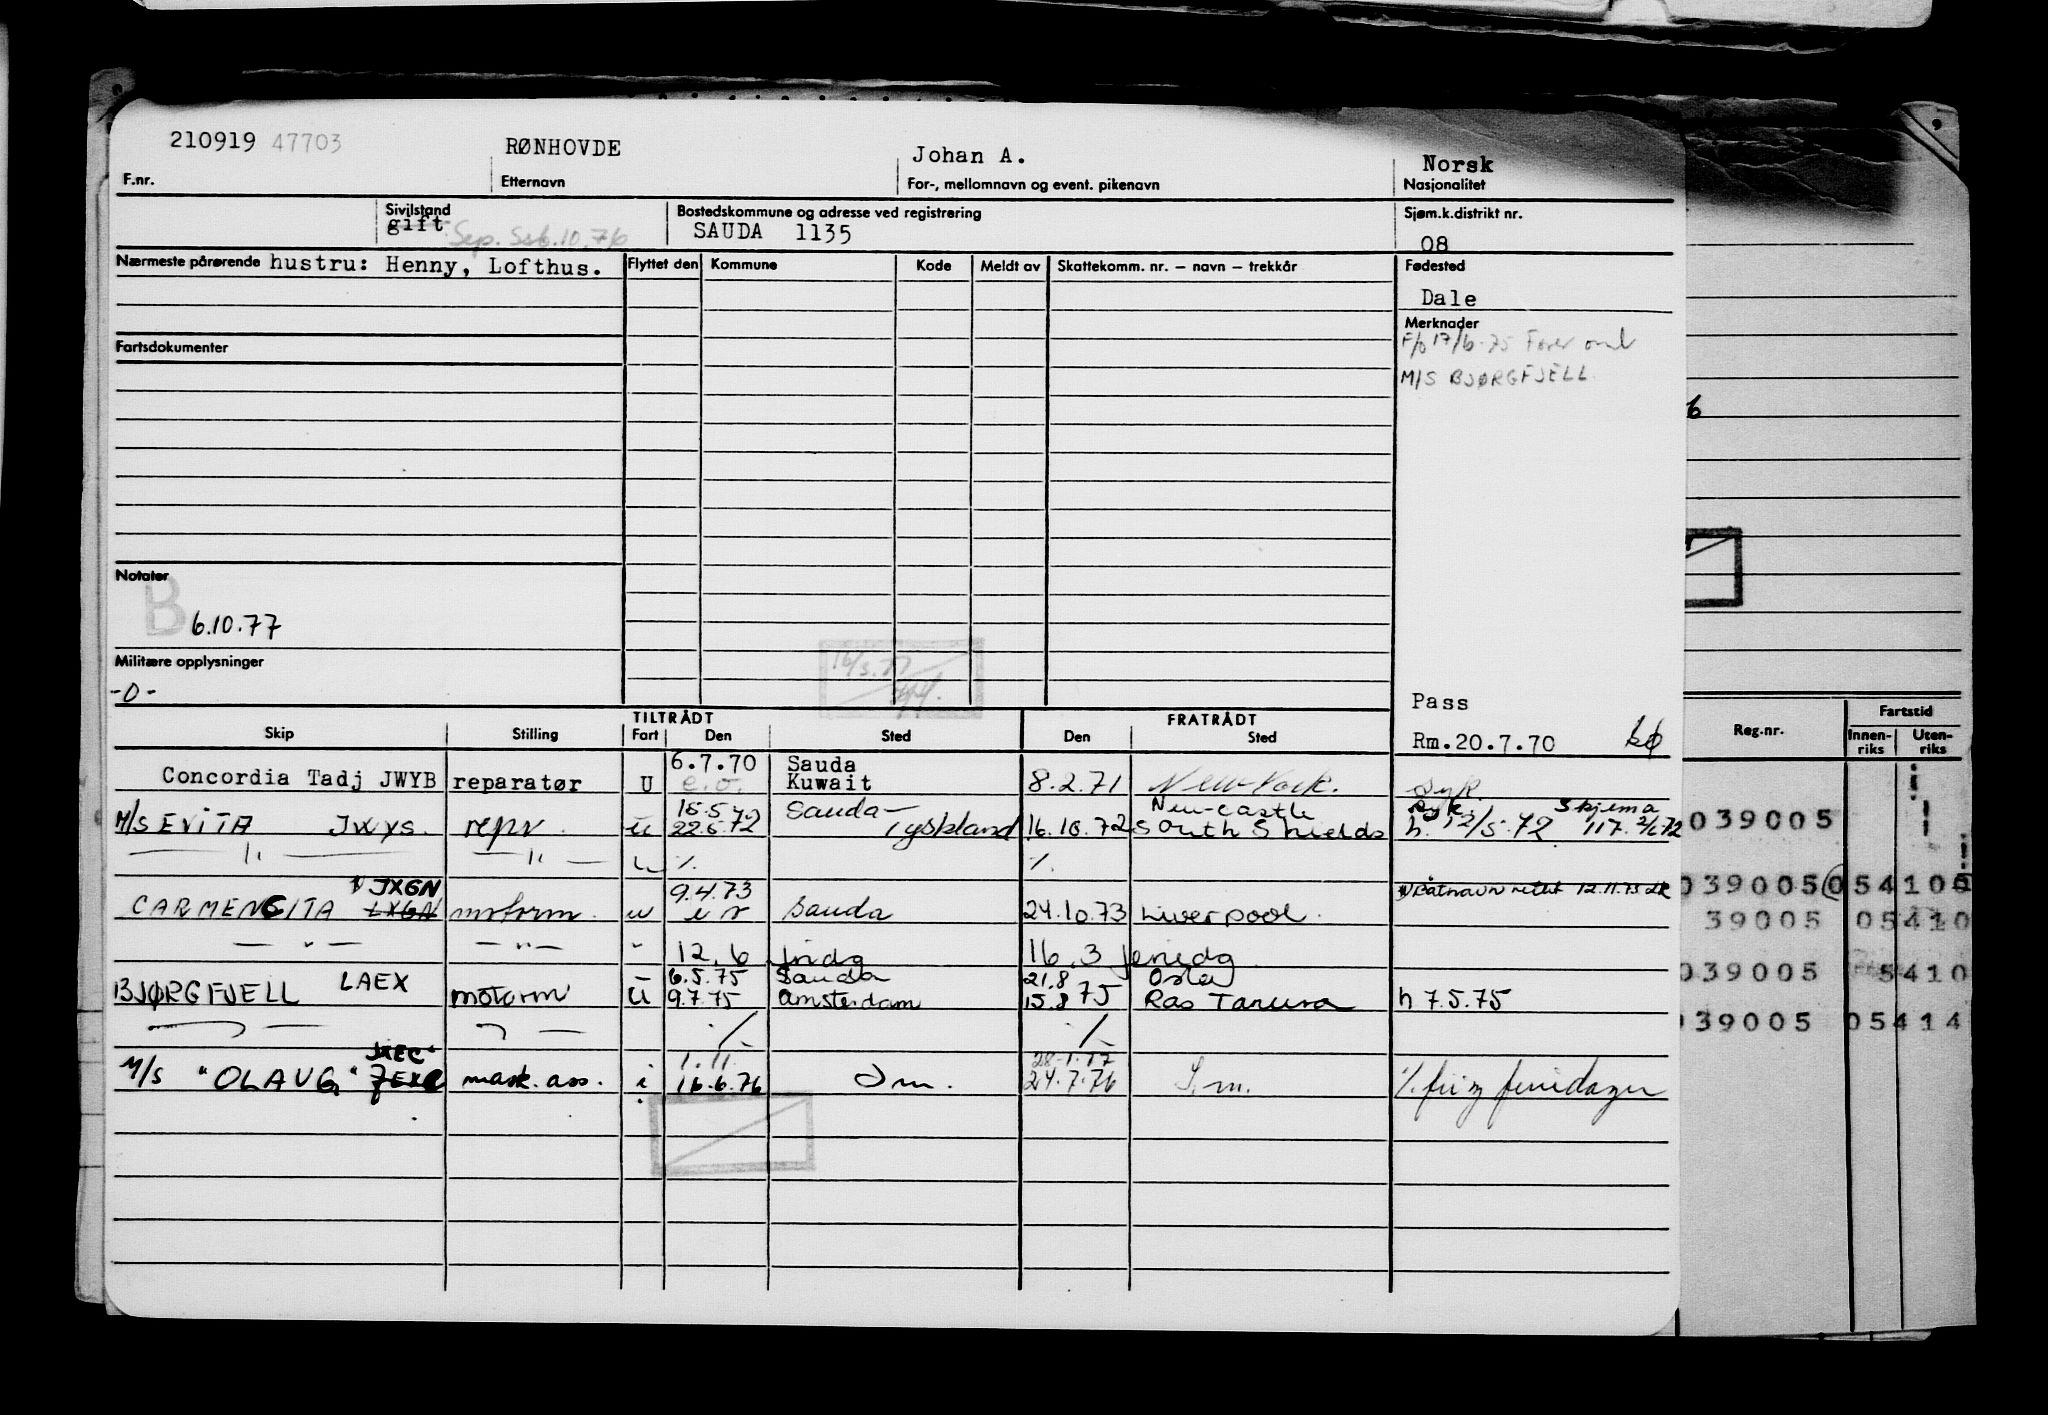 210919 47703 RØNHOVDE Johan A. Norsk
F.nr. Etternavn For-, mellomnavn og event. pikenavn Nasjonalitet
Sivilstand Bostedskommune og adresse ved registrering Sjøm.k.distrikt nr.
gift Sep. 10.76 SAUDA 1135 08
Nærmeste pårørende hustru: Henny, Lofthus. Flyttet den Kommune Kode Meldt av Skattekomm. nr. – navn – trekkår Fødested
Dale
Merknader
F/o 17/6-75
M/S BJØRGFJELL
Fartsdokumenter
6
Notater
B
6.10.77
Militære opplysninger
16/5.77
-0-
Pass
Rm.20.7.70
TILTRÅDT FRATRÅDT
Skip Stilling Fart Den Sted Den Sted
Reg.nr. Fartstid
Innen-riks Uten-riks
6.7.70 Sauda
Concordia Tadj JWYB reparatør U e.o. Kuwait 8.2.71 New York. syk
15.5 Sauda - New-castle syk skjema
M/S EVITA JWYS. repr. u 22.5.72 Tyskland 16.10.72 South Shields h. 12/5.72 117. 2/6 72 039005
-"- -"- u % %
JXGN 9.4.73 1) Båtnavn rettet 12.11.73 039005 054100
CARMENCITA LXGN motorm. u Sauda 24.10.73 Liverpool. 39005 05410
-"- -"- " 12.6 Indg 16.3 feriedg
6.5.75 Sauda 21.8 Oslo 039005 5410
BJØRGFJELL LAEX motorm u 9.7.75 Amsterdam 15.8 75 Ras Tanura h 7.5.75
./. ./. 039005 05414
JXEC 1.11. 28.1.77
M/S "OLAUG" mask. ass. i 16.6.76 Jm. 24.7.76 J.m. %. fri og feriedager